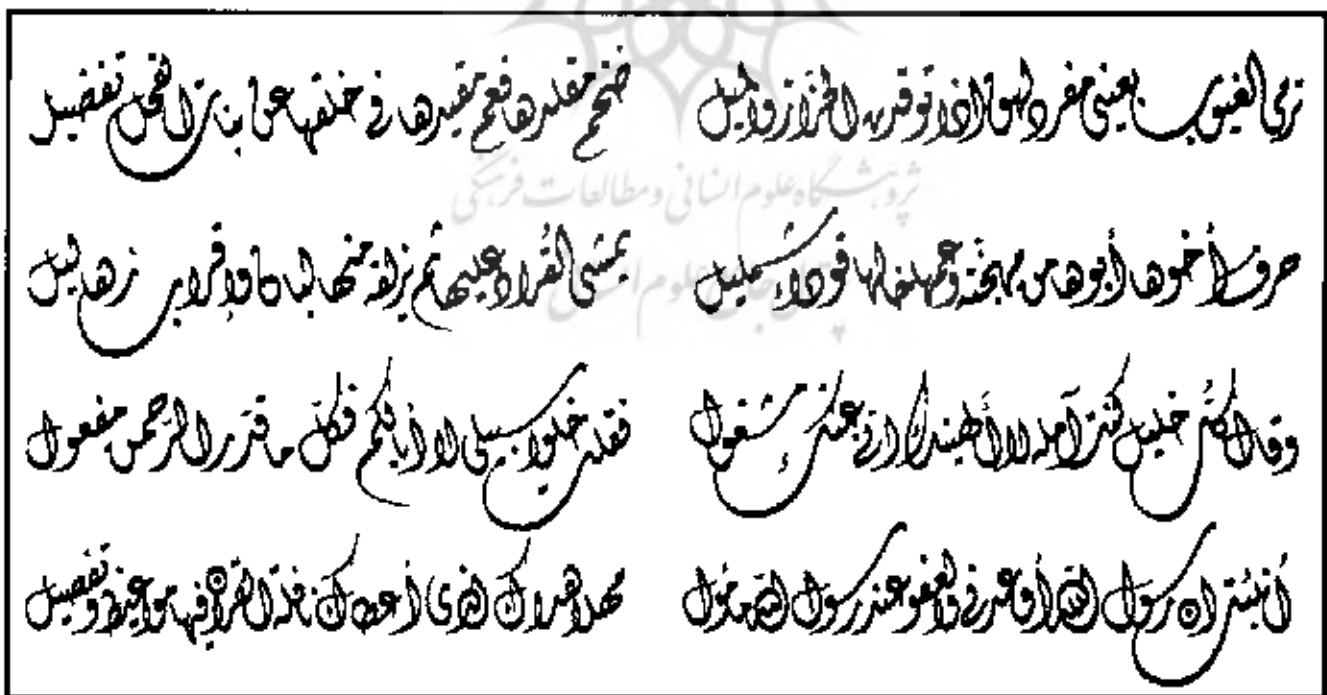 ترمي الغيوب بعيني مفرد لهق إذا توقدت الحزاز والميل    ضخم مقلدها فعم مقيدها في خلقها عن بنات الفحل تفضيل
حرف أخوها أبوها من مهجنة وعمها خالها قوداء شمليل    يمشي القراد عليها ثم يزلقه منها لبان وأقراب زهاليل
وقال كل خليل كنت آمله لا ألهينك إني عنك مشغول    فقلت خلوا سبيلي لا أبا لكم فكل ما قدر الرحمن مفعول
أنبئت أن رسول الله أوعدني والعفو عند رسول الله مأمول    مهلا هداك الذي أعطاك نافلة القرآن فيها مواعيظ وتفصيل
پژوهشگاه علوم انسانی و مطالعات فرهنگی